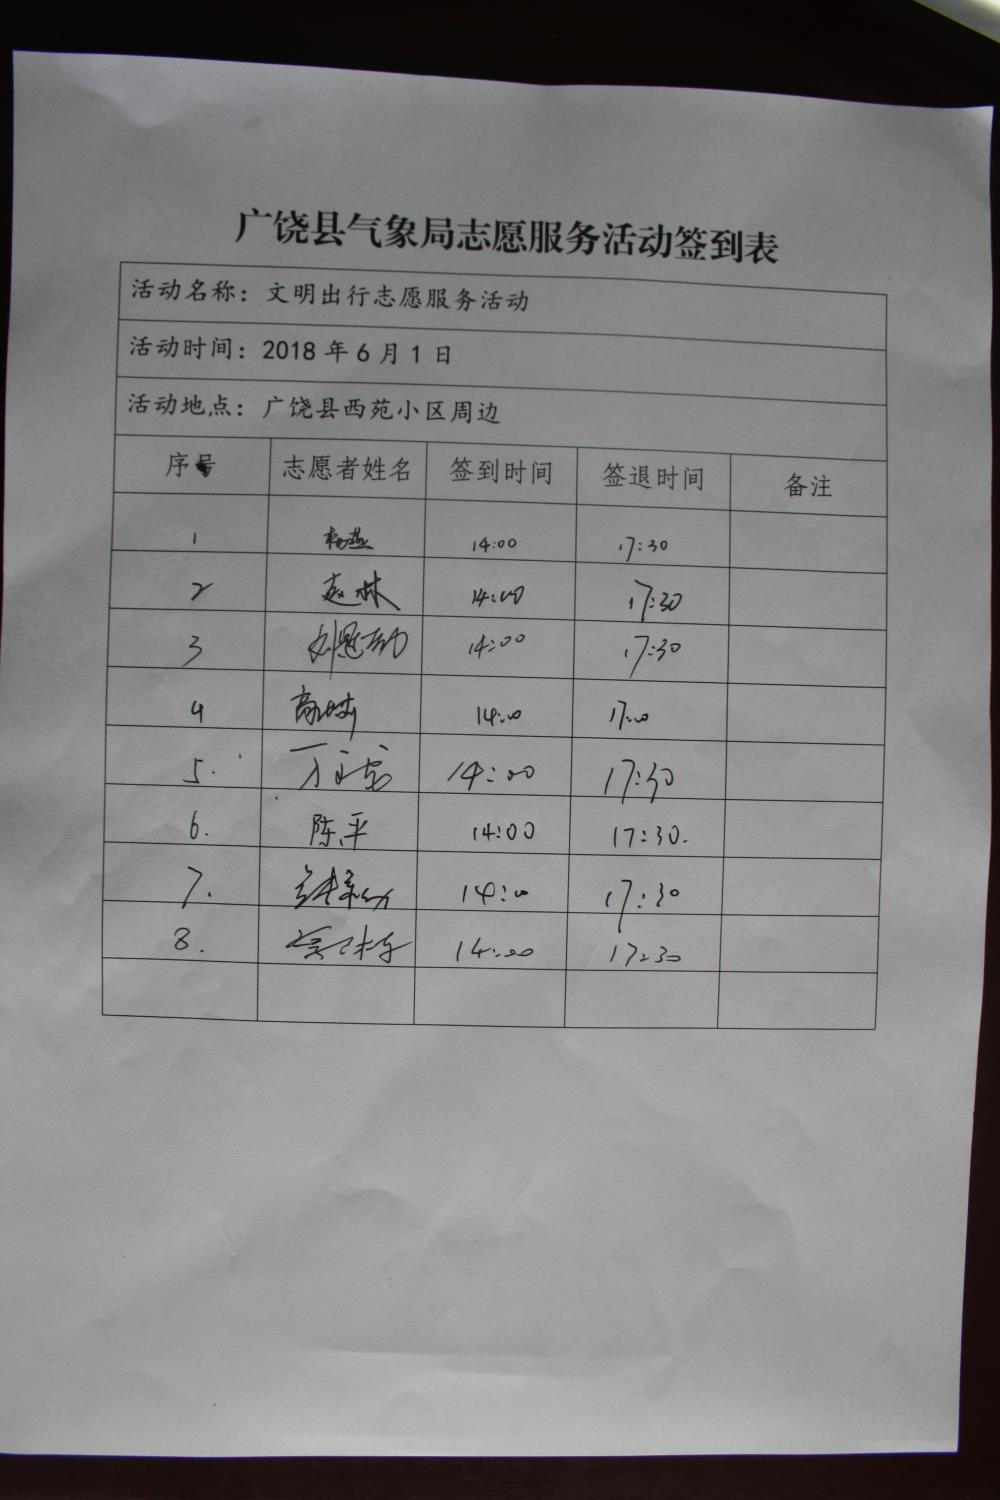 广饶县气象局志愿服务活动签到表
活动名称：文明出行志愿服务活动
活动时间：2018 年 6 月 1 日
活动地点：广饶县西苑小区周边
序号 志愿者姓名 签到时间 签退时间 备注
1 杨燕 14:00 17:30
2 赵林 14:00 17:30
3 14:00 17:30
4 14:00 17:00
5. 14:00 17:30
6. 陈平 14:00 17:30.
7. 14:00 17:30
8. 14:00 17:30